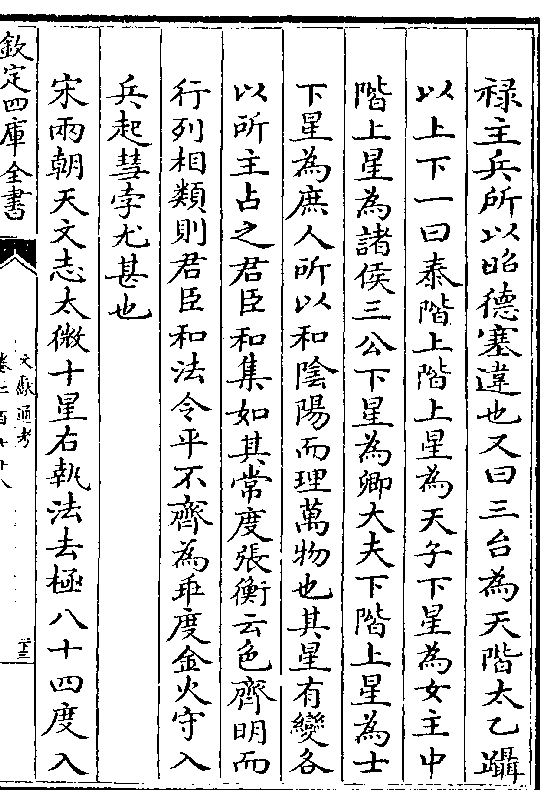 禄主兵所以昭德塞違也又曰三台為天階太乙躡
以上下一曰泰階上階上星為天子下星為女主中
階上星為諸侯三公下星為卿大夫下階上星為士
下星為庶人所以和陰陽而理萬物也其星有變各
以所主占之君臣和集如其常度張衡云色齊明而
行列相類則君臣和法令平不齊為乖度金火守入
兵起彗孛尤甚也
宋兩朝天文志太微十星右執法去極八十四度入
欽定四庫全書
文獻通考
卷二百七十八
二十三